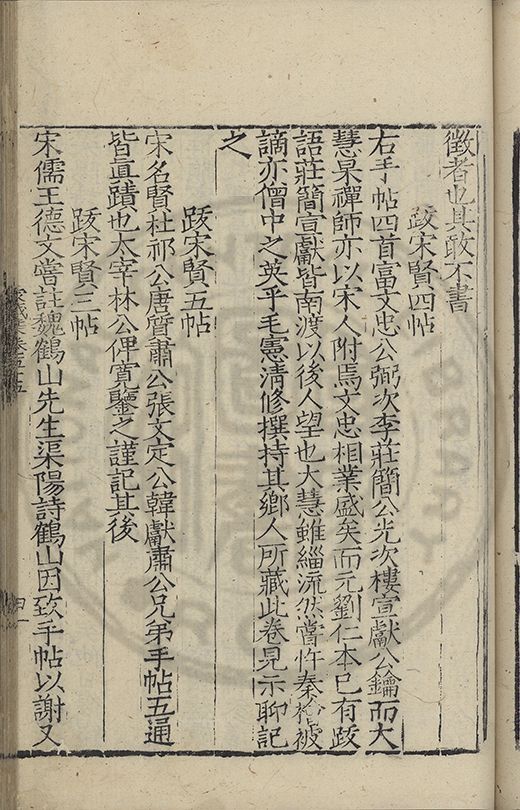 徵者也其敢不書
跋宋賢四帖
右手帖四首富文忠公弼次李莊簡公光次樓宣獻公鑰而大
慧杲禪師亦以宋人附焉文忠相業盛矣而元劉仁本已有跋
語莊簡宣獻皆南渡以後人望也大慧雖緇流然嘗忤秦檜被
謫亦僧中之英乎毛憲清修撰持其鄉人所藏此卷見示聊記
之
跋宋賢五帖
宋名賢杜祁公唐質肅公張文定公韓獻肅公兄弟手帖五通
皆眞蹟也太宰林公俾寬鑒之謹記其後
跋宋賢三帖
宋儒王德文嘗註魏鶴山先生渠陽詩鶴山因致手帖以謝又